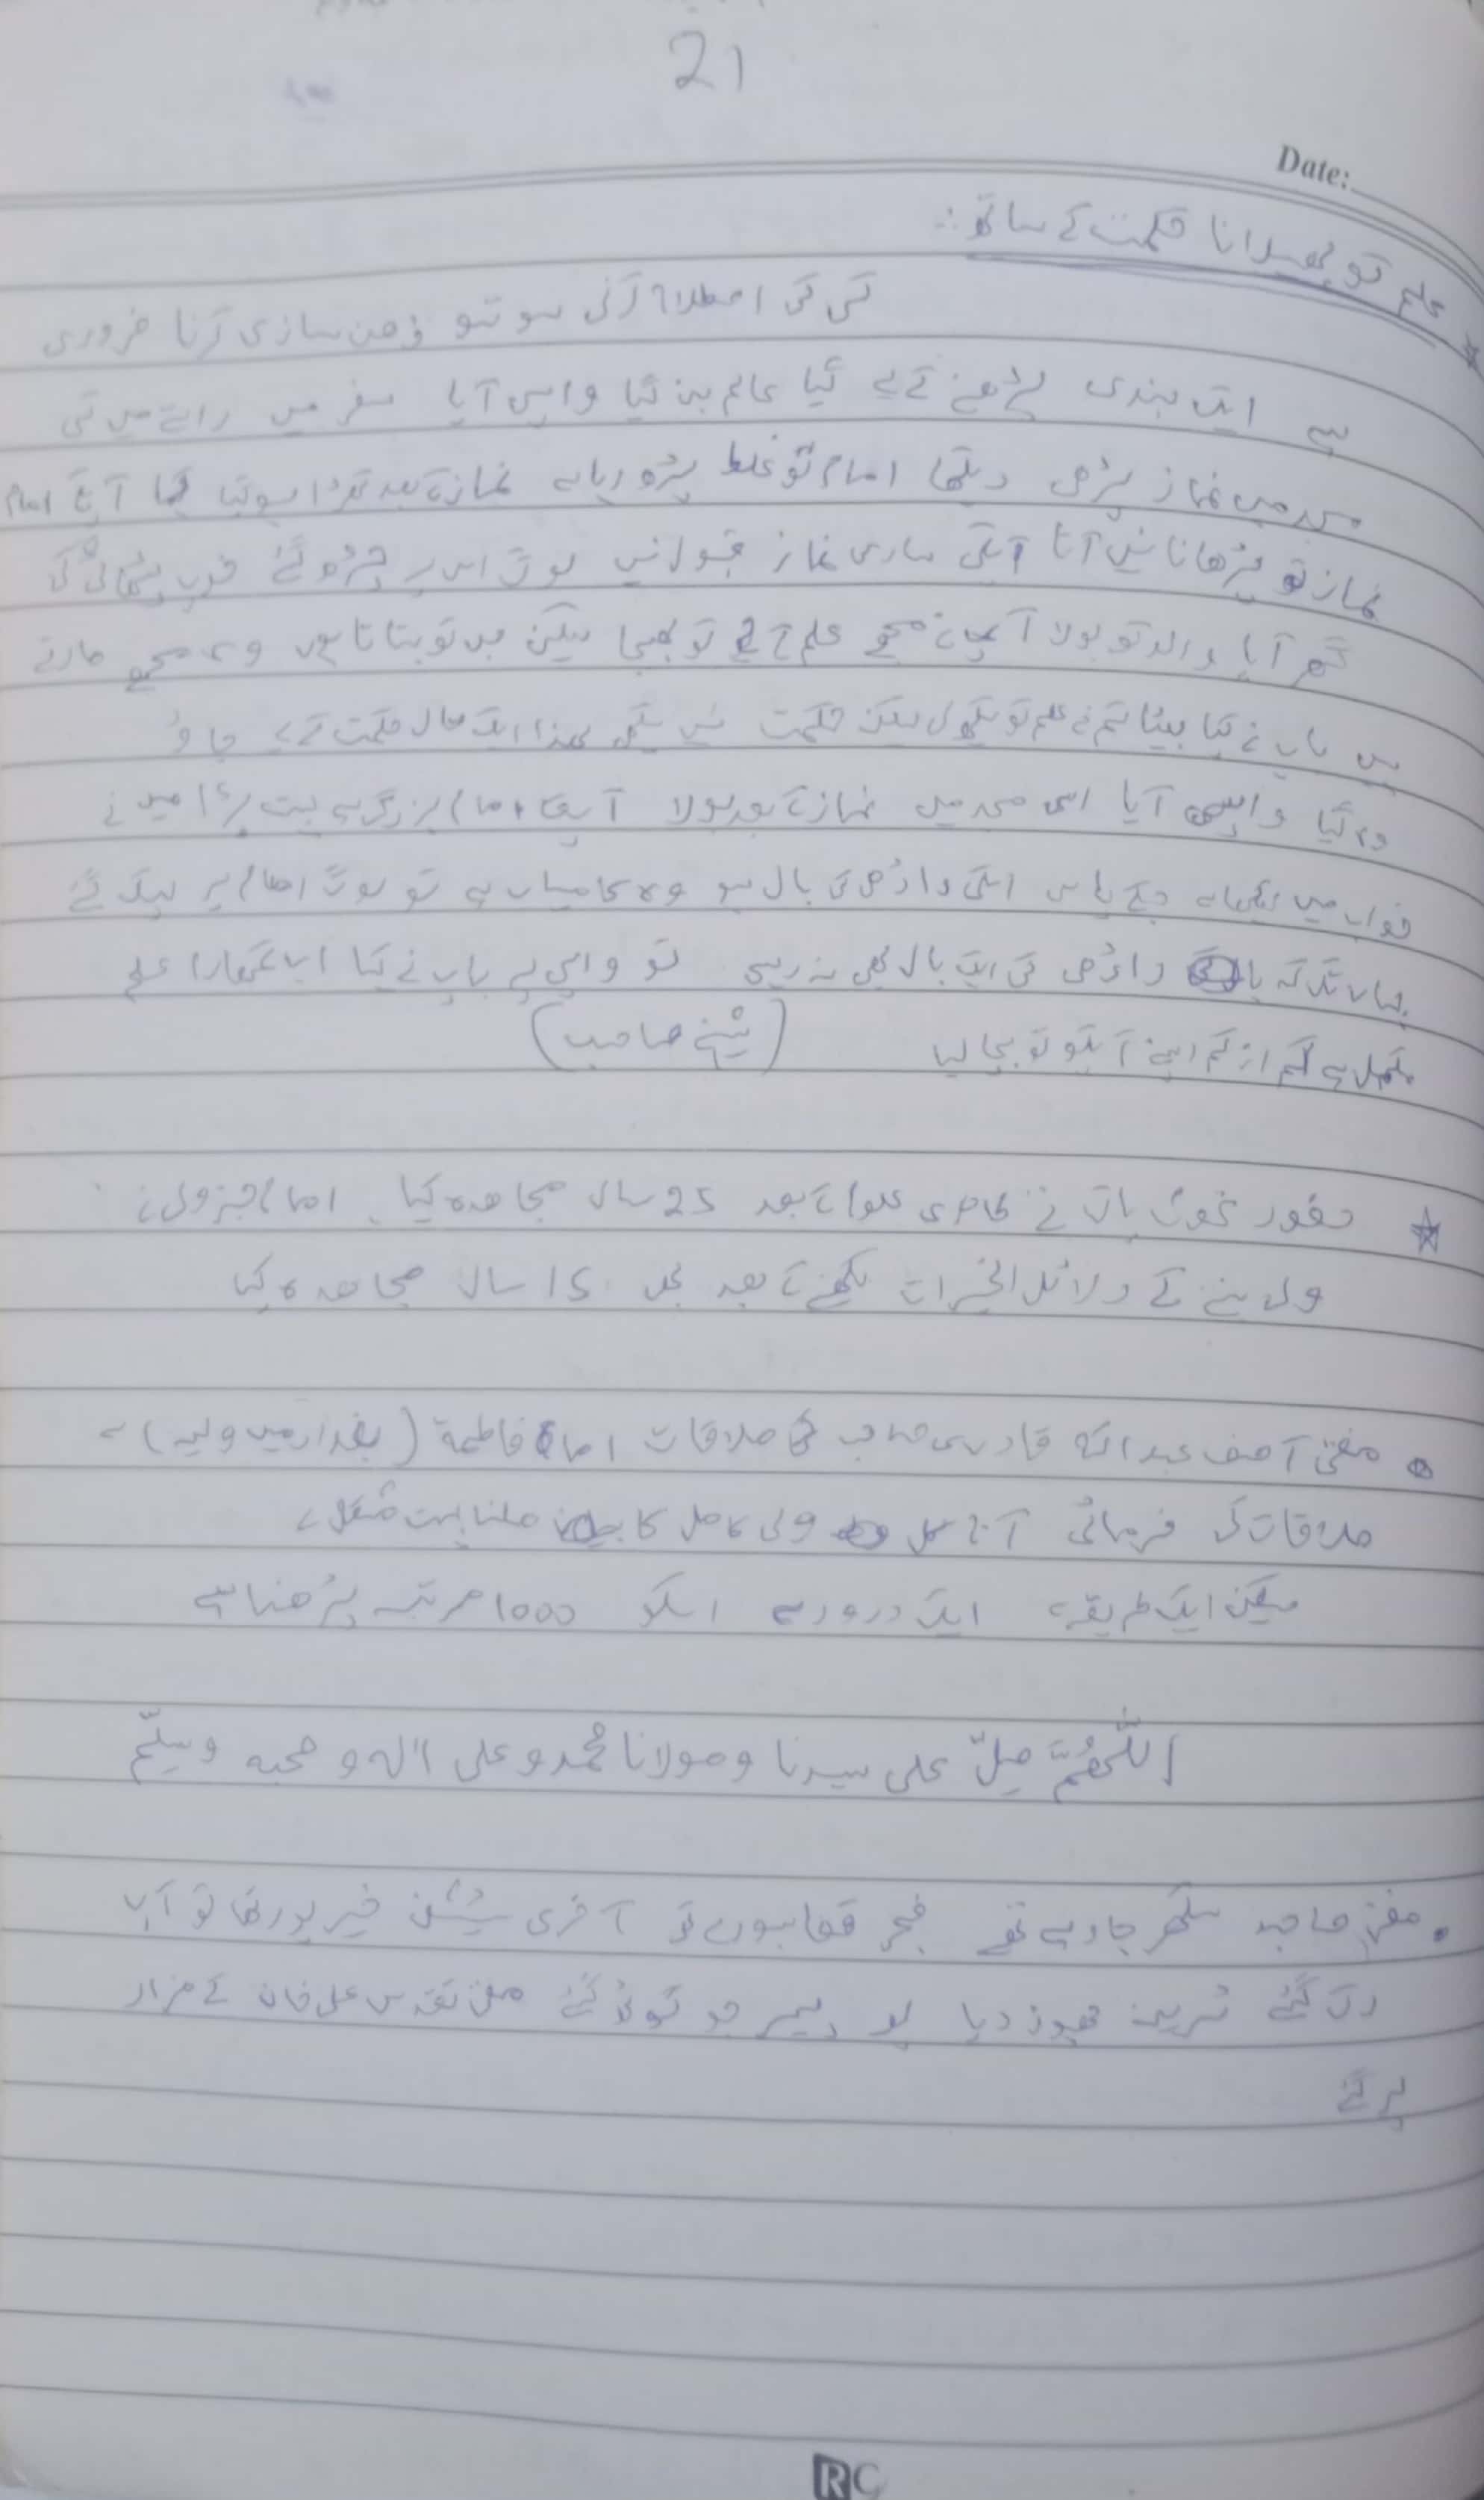 21
Date:
علم کو پھیلانا حکمت کے ساتھ :
کسی کی اصلاح کرنی ہو تو ذھن سازی کرنا ضروری
ہے ایک بندہ پڑھنے کے لیے گیا عالم بن گیا واپس آیا سفر میں راستے میں کسی
مسجد میں نماز پڑھی دیکھا امام تو غلط پڑھ رہا ہے نماز کے بعد کھڑا ہو گیا کہا آپ کے امام
نماز تو پڑھانا نہیں آتا آپکی ساری نماز قبول نہیں لوگ اس پر چڑھ گئے خوب پٹھائی کی
گھر آیا والد کو بولا آپ نے مجھے علم کے لیے تو بھیجا لیکن میں تو بتاتا ہوں وہ مجھے مارتے
ہیں باپ نے کہا بیٹا تم نے علم تو سیکھ لی لیکن حکمت نہیں سیکھی لھذا ایک سال حکمت کے لیے جاؤ
وہ گیا واپس آیا اسی مسجد میں نماز کے بعد بولا آپکا امام بزرگ ہے بہت بڑا میں نے
خواب میں دیکھا ہے جسکے پاس اسکی داڑھی کی بال ہو وہ کامیاب ہے تو لوگ امام پر لپک گئے
یہاں تک کہ داڑھی کی ایک بال بھی نہ رہی تو واپسی پے باپ نے کہا اب تمھارا علم
مکمل ہے کم از کم اپنے آپکو تو بچا لیا (شیخ صاحب)
حضور غوث پاک نے ظاھری علوم کے بعد 25 سال مجاھدہ کیا۔ امام جزولی نے
ولی بننے کے دلائل الخیرات لکھنے کے بعد بھی 15 سال مجاھدہ کیا
مفتی آصف عبداللہ قادری صاحب کی ملاقات اماں فاطمۃ (بغداد میں ولیہ) سے
ملاقات کی فرمائی آج کل ولی کامل کا ملنا بہت مشکل ہے
لیکن ایک طریقہ ہے ایک درود ہے اسکو 1000 مرتبہ پڑھنا ہے
اَللّٰھُمَّ صلِّ علی سیدنا ومولانا محمد وعلی اٰلہ و صحبہ وسلِّم
مفتی صاحب سکھر جارہے تھے فجر قضا ہورہی تھی آخری سٹیشن خیرپور تھا تو آپ
رک گئے ٹرین چھوڑ دیا پھر مفتی تقدس علی خان کے مزار
پر گئے
RC